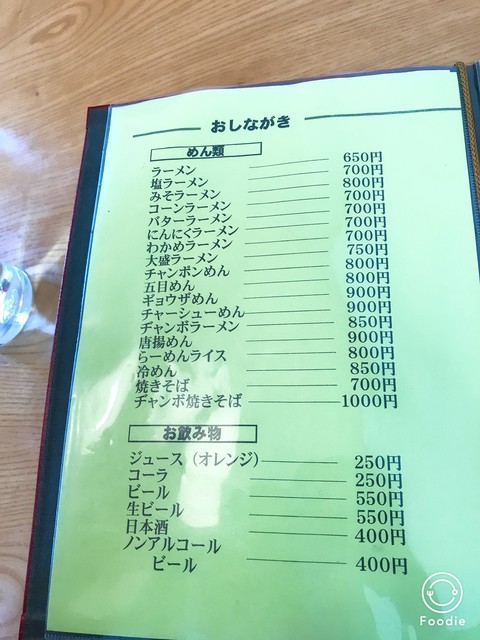 おしながき
めん類
ラーメン 650円
塩ラーメン 700円
みそラーメン 800円
コーンラーメン 700円
バターラーメン 700円
にんにくラーメン 700円
わかめラーメン 700円
大盛ラーメン 750円
チャンポンめん 800円
五目めん 800円
ギョウザめん 900円
チャーシューめん 900円
ヂャンボラーメン 850円
唐揚めん 900円
らーめんライス 800円
冷めん 850円
焼きそば 700円
ヂャンボ焼きそば 1000円
お飲み物
ジュース（オレンジ） 250円
コーラ 250円
ビール 550円
生ビール 550円
日本酒 400円
ノンアルコール
ビール 400円
Foodie